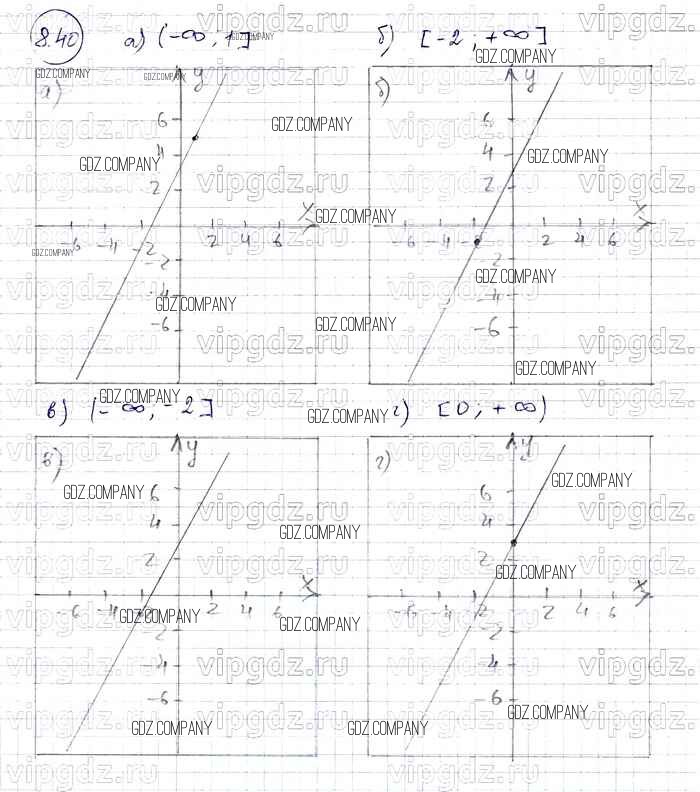 8.40 а) (-∞; 1] б) [-2; +∞]
GDZ.COMPANY
vipgdz.ru
а) y б) y
6 6
GDZ.COMPANY
4 4
2 2
x x
-6 -4 -2 2 4 6 -6 2 4 6
-2 2
-4 -4
-6 -6
в) (-∞; -2] г) [0; +∞)
в) y г) y
6 6
4 4
2 2
x x
-6 -4 2 4 6 2 4 6
-2 -2
-4 -4
-6 -6
GDZ.COMPANY
vipgdz.ru